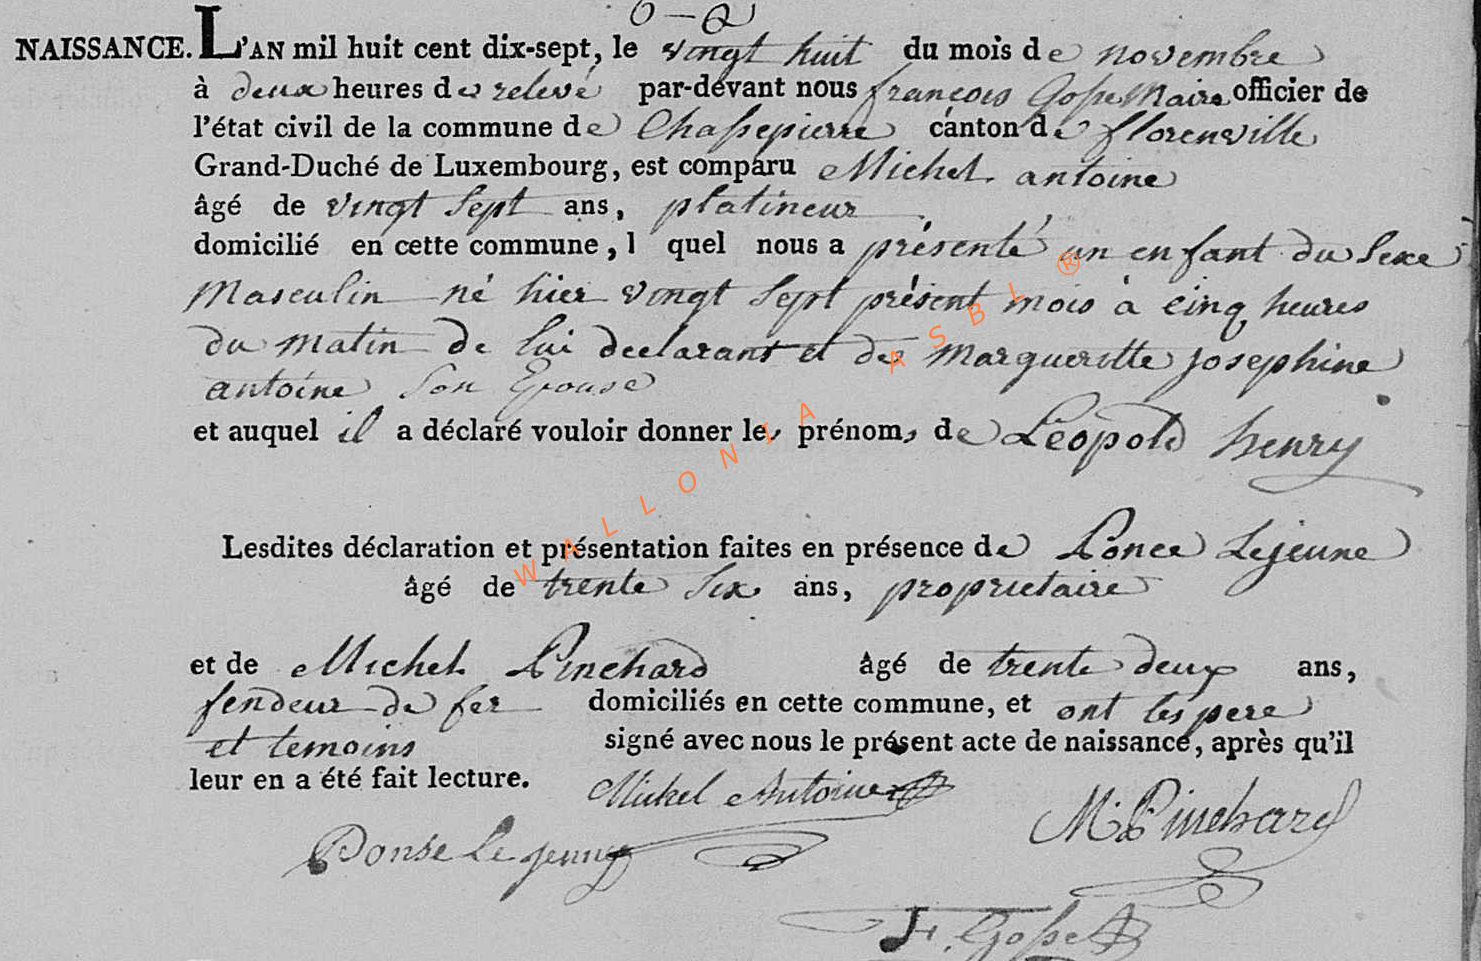 NAISSANCE. L'AN mil huit cent dix-sept, le vingt huit du mois de novembre
à deux heures de relevé par-devant nous françois Gosse Maire officier de
l'état civil de la commune de Chassepierre canton de florenville
Grand-Duché de Luxembourg, est comparu Michel antoine
âgé de vingt Sept ans, platineur
domicilié en cette commune, l quel nous a présenté un enfant du Sexe
Masculin né hier vingt Sept présent mois à cinq heures
du matin de lui declarant et de Margueritte Josephine
antoine Son Epouse
et auquel il a déclaré vouloir donner les prénoms de Léopold henry
Lesdites déclaration et présentation faites en présence de Ponce Lejeune
âgé de trente Six ans, proprietaire
et de Michel Pinchard âgé de trente deux ans,
fendeur de fer domiciliés en cette commune, et ont les pere
et temoins signé avec nous le présent acte de naissance, après qu'il
leur en a été fait lecture. Michel Antoine
M. Pinchard
Ponse Le jeune
F. Gosse
WALLONIA ASBL ®